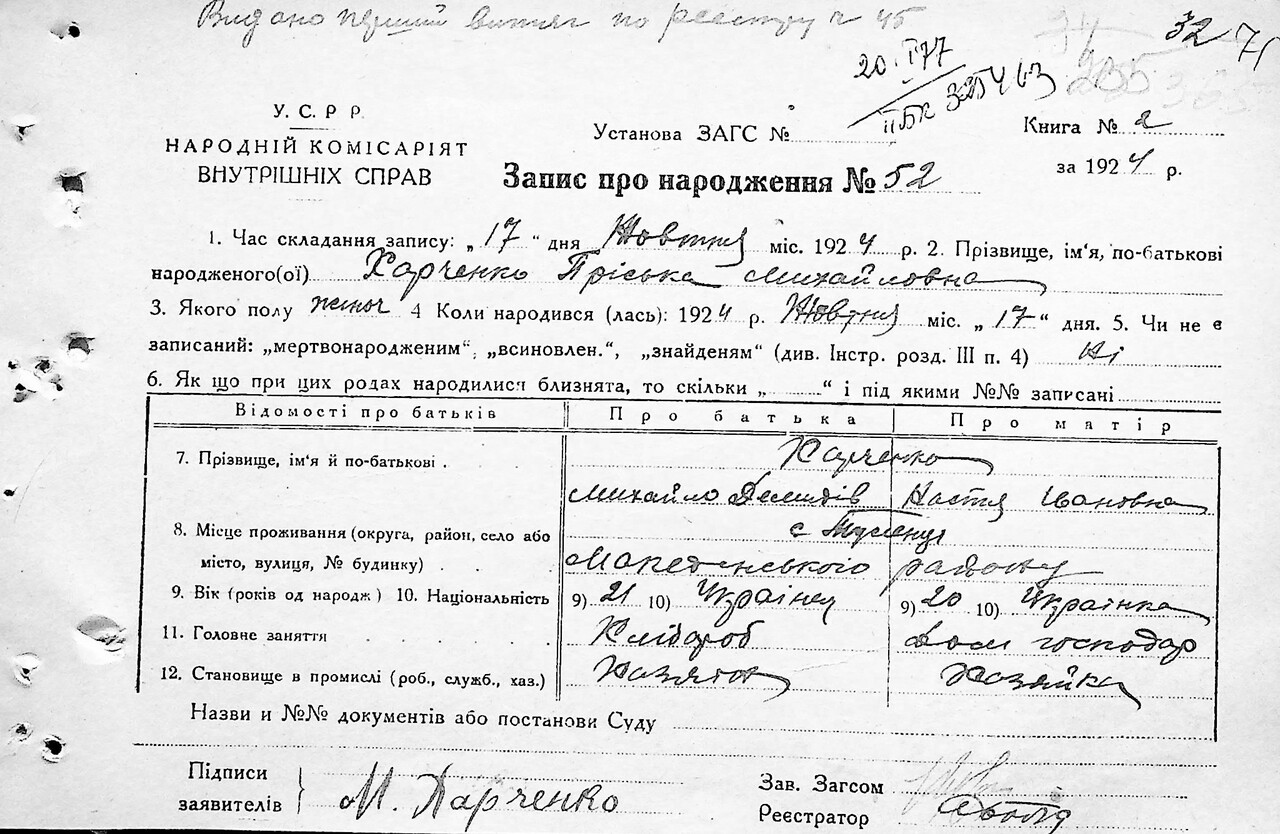 Видано перший витяг по реєстру ч 45
32 71
20.I 77
ІІБК 325463
У. С. Р Р.
НАРОДНІЙ КОМІСАРІЯТ
ВНУТРІШНІХ СПРАВ
Установа ЗАГС №
Книга № 2
за 1924 р.
Запис про народження № 52
1. Час складання запису: „17“ дня Жовтня міс. 1924 р. 2. Прізвище, ім'я, по-батькові
народженого(ої) Харченко Пріська Михайловна
3. Якого полу жіноч 4 Коли народився (лась): 1924 р. Жовтня міс. „17“ дня. 5. Чи не є
записаний: „мертвонародженим“, „всиновлен.“, „знайденям“ (див. Інстр. розд. III п. 4) Ні
6. Як що при цих родах народилися близнята, то скільки „ “ і під якими №№ записані
Відомості про батьків Про батька Про матір
7. Прізвище, ім'я й по-батькові . Харченко
Михайло Демидів Настя Івановна
8. Місце проживання (округа, район, село або с
місто, вулиця, № будинку) . Македонського району
9. Вік (років од народж ) 10. Національність 9) 21 10) Українец 9) 20 10) Українка
11. Головне заняття . . . . Хлібороб Дом господар
12. Становище в промислі (роб., служб., хаз.) Хазяїн Хазяйка
Назви и №№ документів або постанови Суду
Підписи
заявителів
М. Харченко
Зав. Загсом
Реєстратор